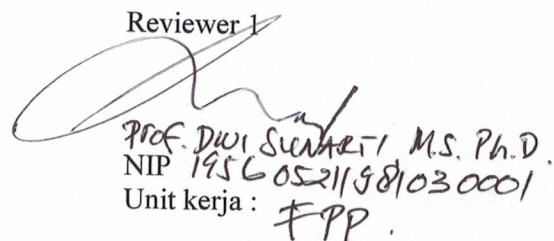 Reviewer 1
Prof. DWI SUNARTI M.S. Ph.D.
NIP 195605211981030001
Unit kerja : FPP.